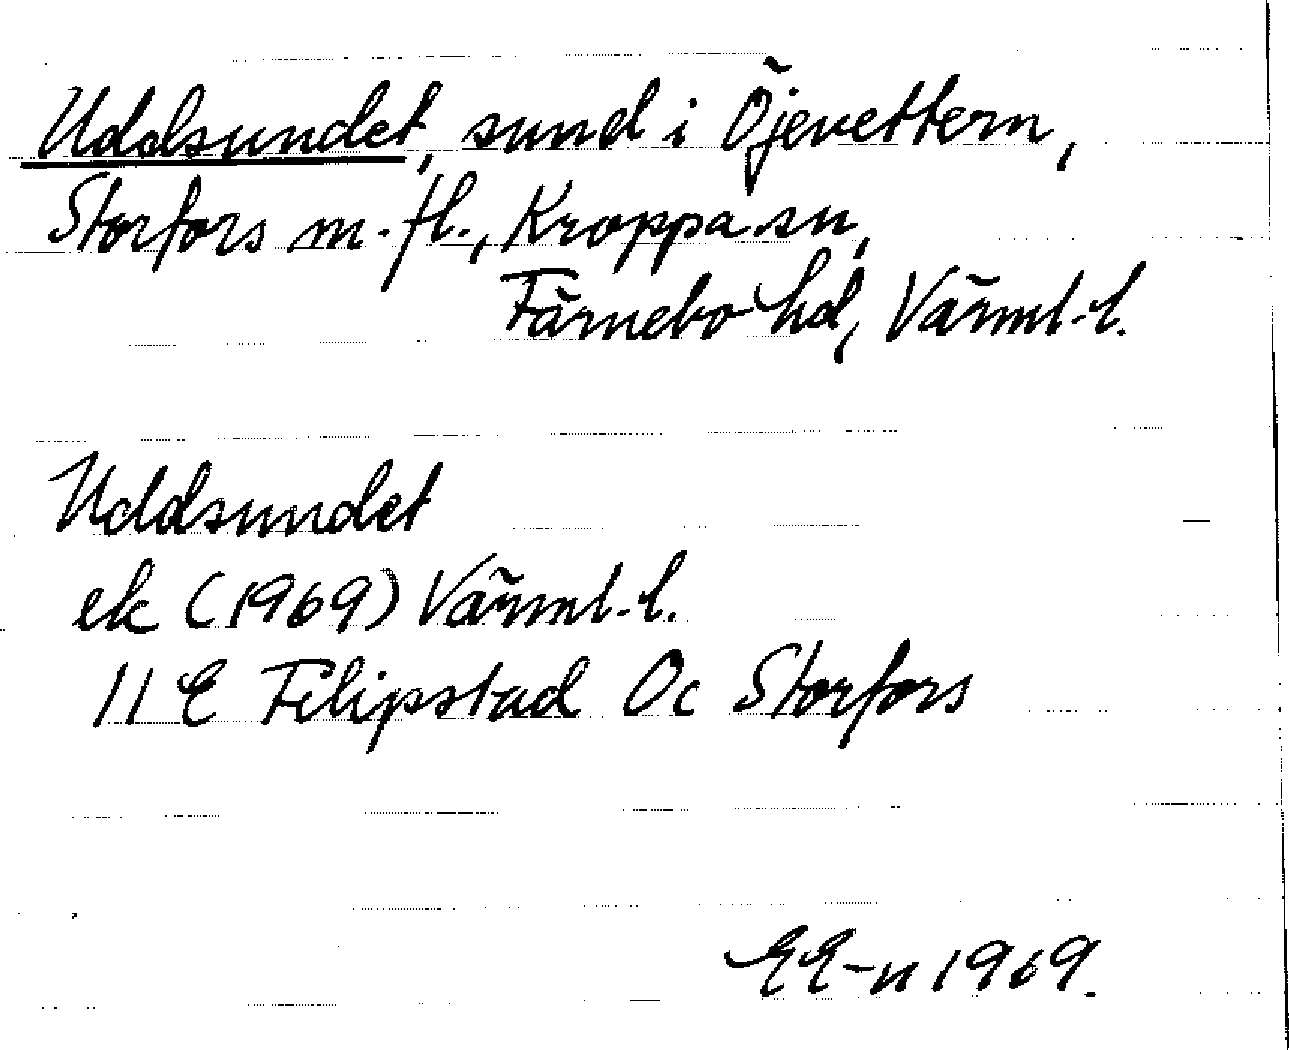 Uddsundet, sund i Öjevettern,
Storfors m.fl., Kroppa sn,
Färnebo hd, Värml. l.
Uddsundet
ek (1969) Värml. l.
11 E Filipstad 0c Storfors
EE-n 1969.